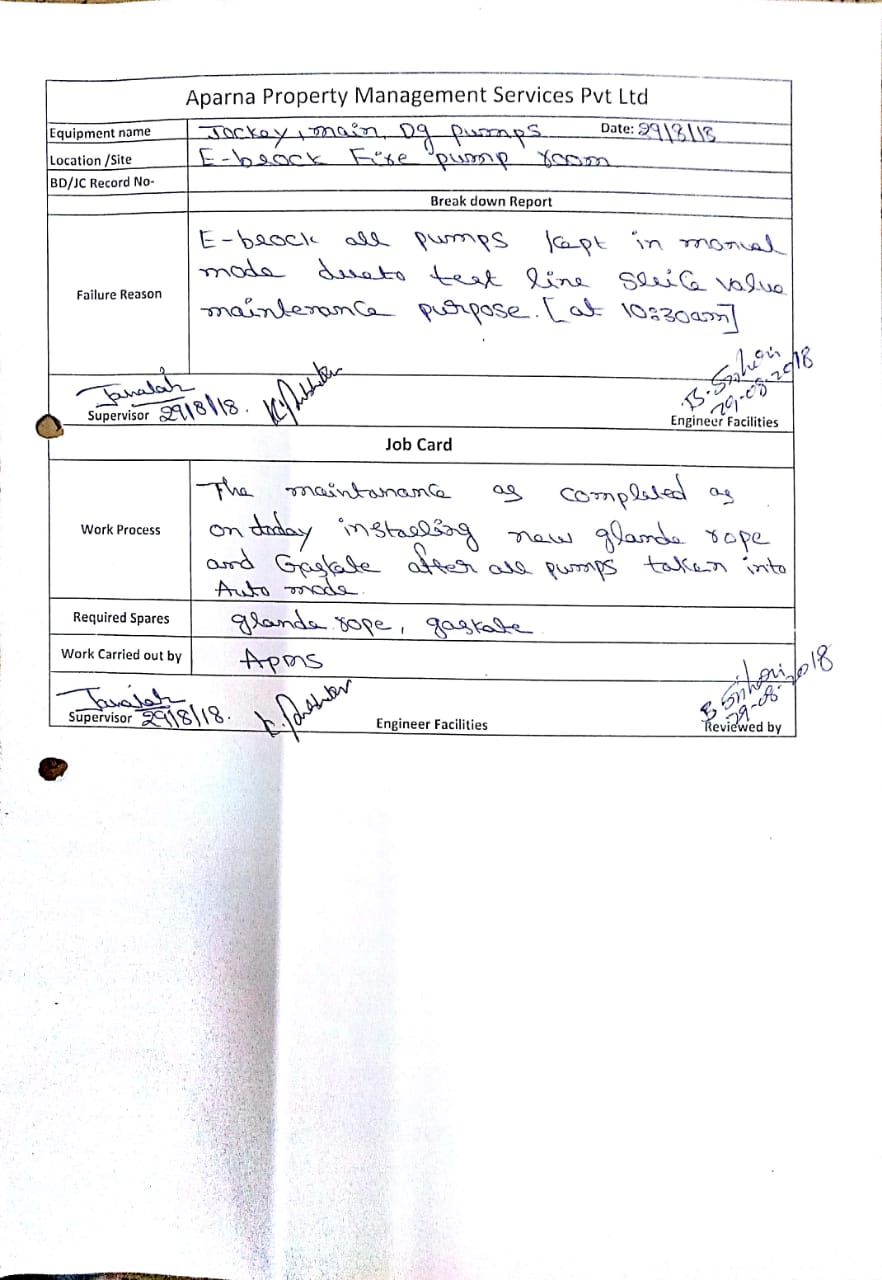 Aparna Property Management Services Pvt Ltd
Equipment name Jockey, main, Dg pumps Date: 29/8/18
Location /Site E-block Fire pump room
BD/JC Record No-
Break down Report
Failure Reason
E-block all pumps kept in manual
mode dueto test line sluice value
maintenance purpose. [at 10:30am]
Supervisor 29/8/18.
B. Srihari
29-08-2018
Engineer Facilities
Job Card
Work Process
The maintanance as completed as
on today installing new glande rope
and Gaskate after all pumps taken into
Auto mode.
Required Spares glande rope, gaskate
Work Carried out by Apms
Supervisor 29/8/18.
Engineer Facilities
B Srihari
29-08-2018
Reviewed by